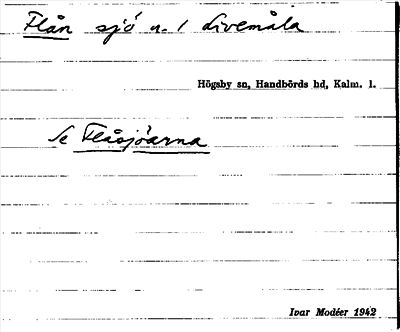 Flån sjö n. / Sivemåla
Högsby sn, Handbörds hd, Kalm. l.
Se Flåsjöarna
Ivar Modéer 1942